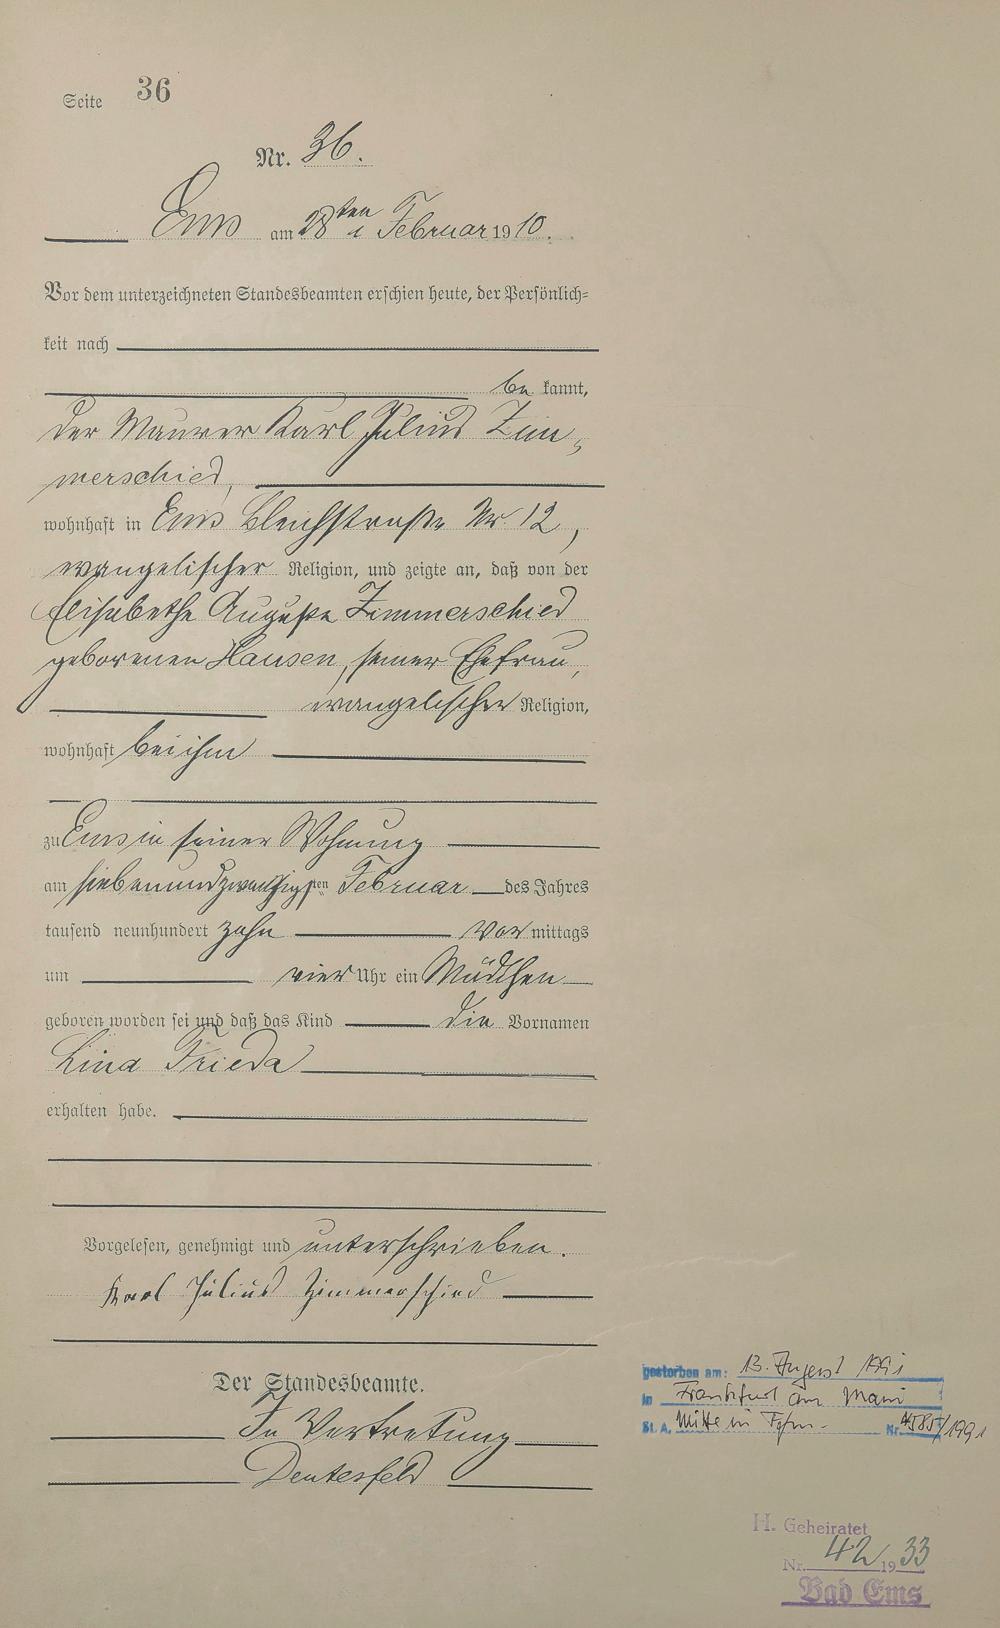 Seite 36
Nr. 36.
Ems am 28ten Februar 1910.
Vor dem unterzeichneten Standesbeamten erschien heute, der Persönlich=
keit nach
be kannt,
der Maurer Karl Julius Zim-
merschied,
wohnhaft in Ems Bleichstraße Nr. 12,
evangelischer Religion, und zeigte an, daß von der
Elisabethe Auguste Zimmerschied
geborenen Hausen, seiner Ehefrau,
evangelischer Religion,
wohnhaft bei ihm
zu Ems in seiner Wohnung
am siebenundzwanzigsten Februar des Jahres
tausend neunhundert zehn vor mittags
um vier Uhr ein Mädchen
geboren worden sei und daß das Kind die Vornamen
Lina Frieda
erhalten habe.
Vorgelesen, genehmigt und unterschrieben.
Karl Julius Zimmerschied
Der Standesbeamte.
In Vertretung
gestorben am: 13. August 1991
in Frankfurt am Main
St. A. Mitte in Nr. 4585/1991
H. Geheiratet
Nr. 42 1933
Bad Ems